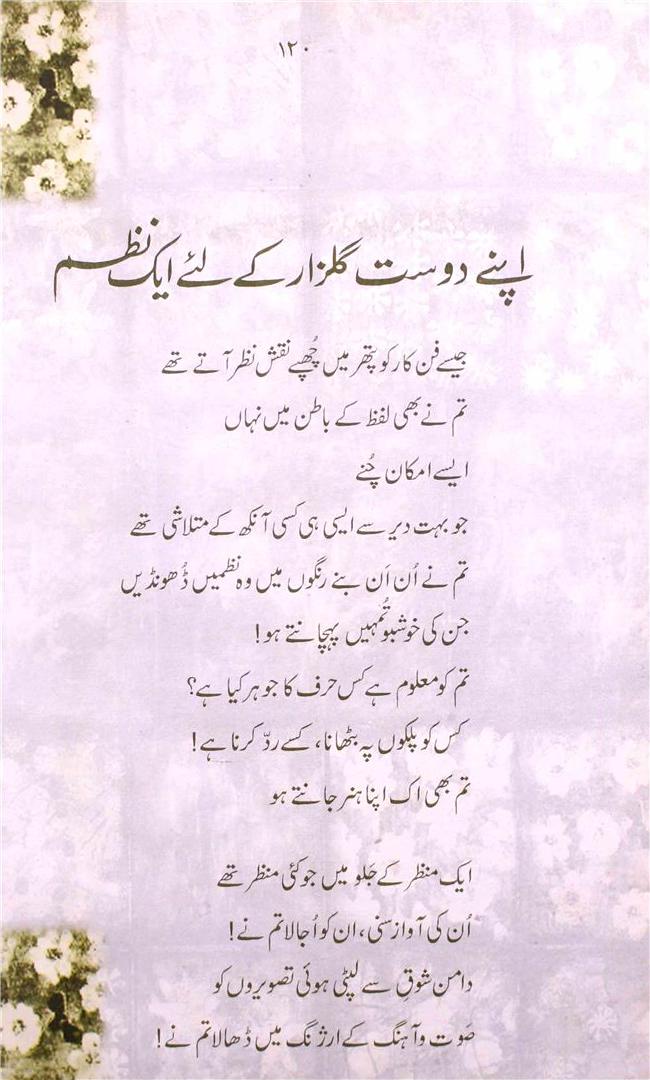 ۱۲۰
اپنے دوست گلزار کے لئے ایک نظم
جیسے فن کار کو پتھر میں چُھپے نقش نظر آتے تھے
تم نے بھی لفظ کے باطن میں نہاں
ایسے امکان چُنے
جو بہت دیر سے ایسی ہی کسی آنکھ کے متلاشی تھے
تم نے اُن اَن بنے رنگوں میں وہ نظمیں ڈُھونڈیں
جن کی خوشبو تُمہیں پہچانتے ہو!
تم کو معلوم ہے کس حرف کا جوہر کیا ہے؟
کس کو پلکوں پہ بٹھانا، کسے ردّ کرنا ہے!
تم بھی اک اپنا ہنر جانتے ہو
ایک منظر کے جَلو میں جو کئی منظر تھے
اُن کی آواز سنی، ان کو اُجالا تم نے!
دامن شوقِ سے لپٹی ہوئی تصویروں کو
صَوت و آہنگ کے ارژنگ میں ڈھالا تم نے!